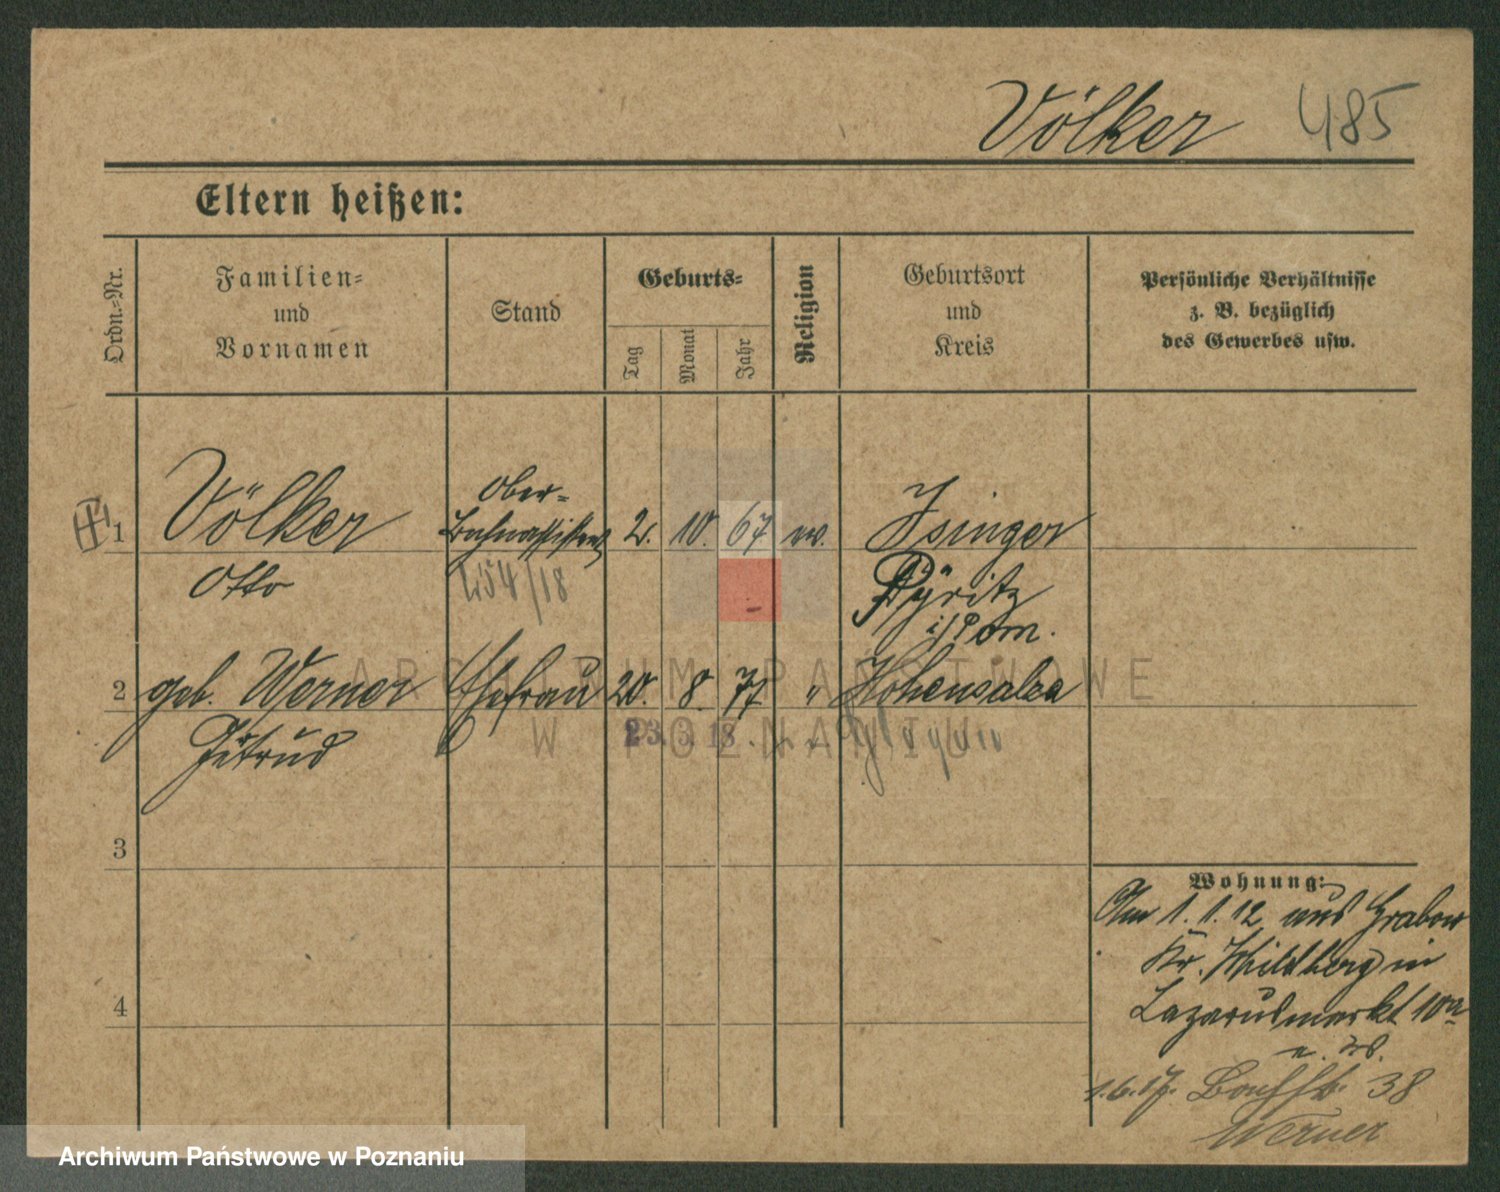 Völker 485
Eltern heißen:
Ordn.-Nr.
Familien-
und
Vornamen
Stand
Geburts-
Tag
Monat
Jahr
Religion
Geburtsort
und
Kreis
Persönliche Verhältnisse
z. B. bezüglich
des Gewerbes usw.
Ober-
1 Völker Bahnassistent 2. 10. 67 ev. Isinger
Otto 254/18 Pyritz
i/Pom.
ARCHIWUM PAŃSTWOWE
2 geb. Werner Ehefrau 20. 8. 77 " Hohensalza
W POZNANIU
23. 3. 18.
3
Wohnung:
Am 1.1.12 aus Grabow
Kr. Schildberg in
4 Lazarusmarkt 10a
1.6.17. 38
Werner
Archiwum Państwowe w Poznaniu